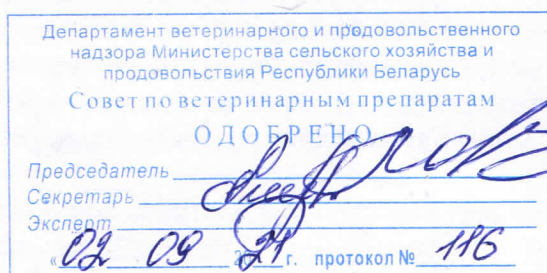 Департамент ветеринарного и продовольственного
надзора Министерства сельского хозяйства и
продовольствия Республики Беларусь
Совет по ветеринарным препаратам
ОДОБРЕНО
Председатель
Секретарь
Эксперт
«02 09 21 г. протокол № 116